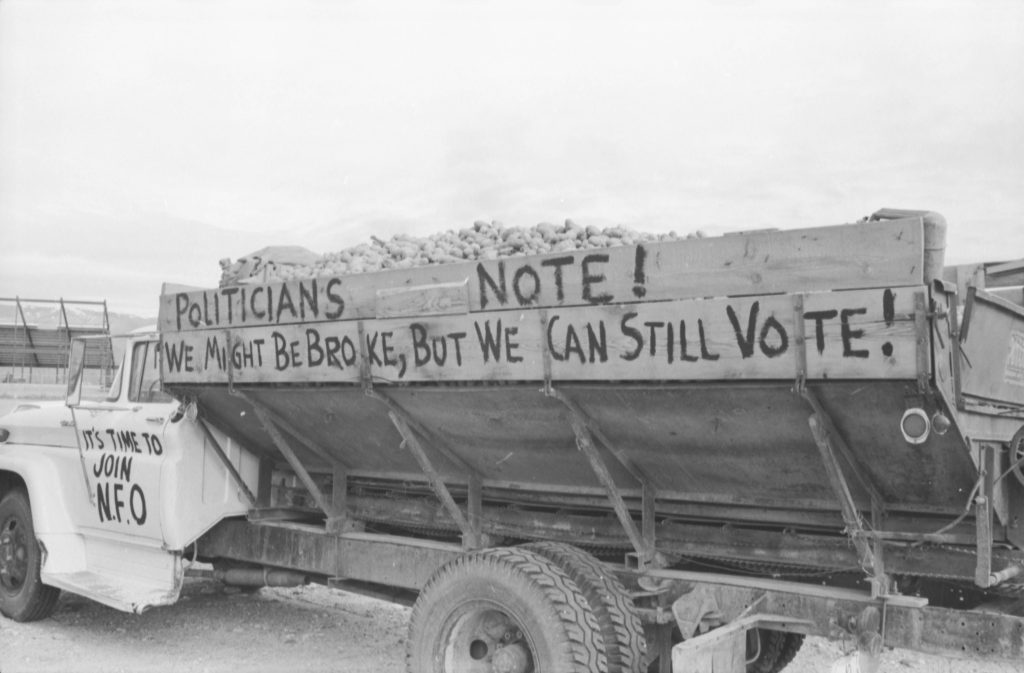 POLITICIAN'S NOTE!
WE MIGHT BE BROKE, BUT WE CAN STILL VOTE!
IT'S TIME TO
JOIN
N.F.O